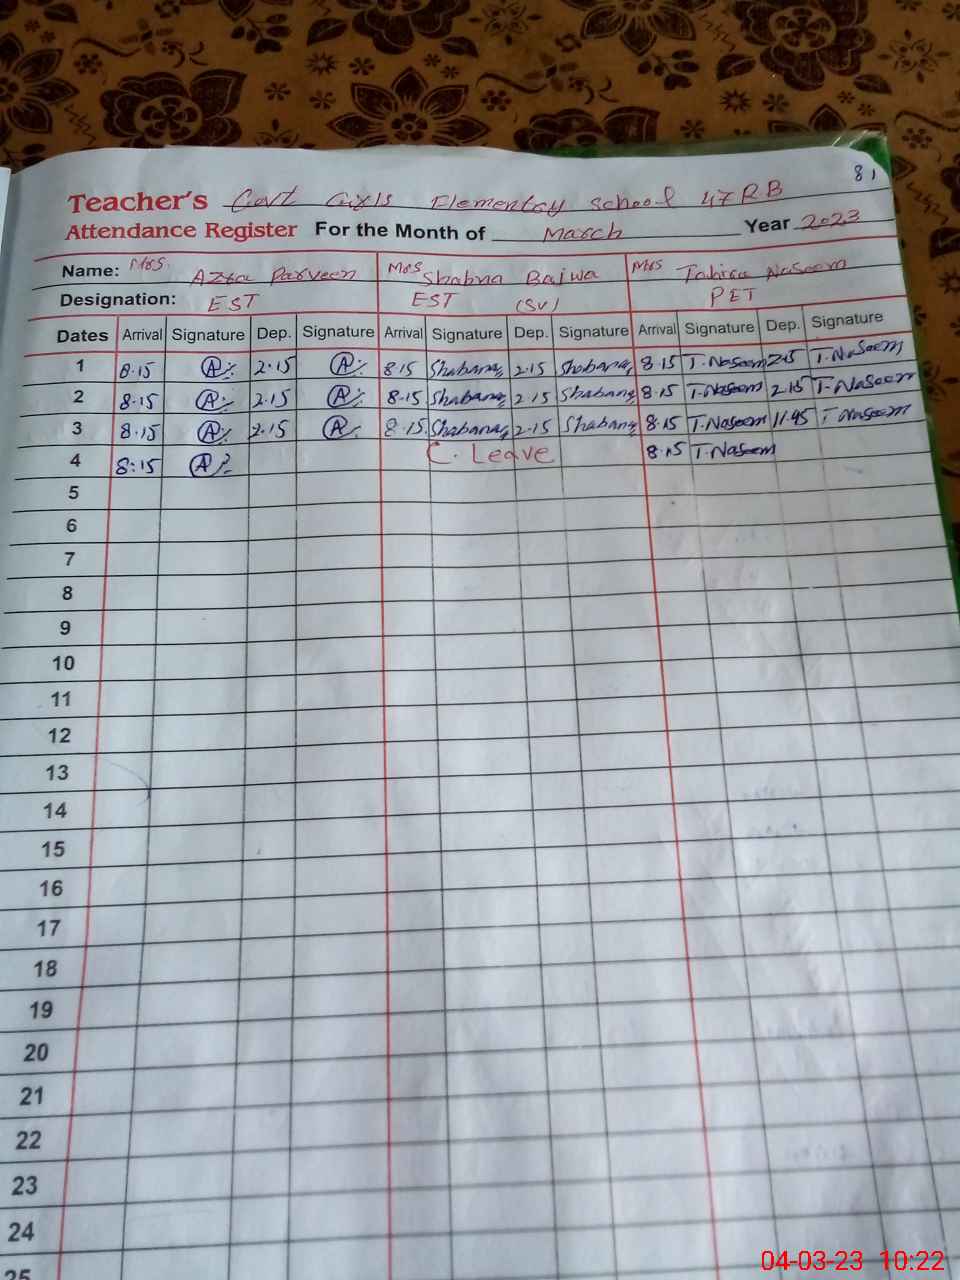 81
Teacher's Govt Girls Elementary School 47RB
Attendance Register For the Month of March Year 2023
Name: Mrs. Azra Parveen Mrs Shabna Bajwa Mrs Tahira Naseem
Designation: EST EST (SV) PET
Dates Arrival Signature Dep. Signature Arrival Signature Dep. Signature Arrival Signature Dep. Signature
1 8.15 A 2.15 A 8.15 Shabana 2.15 Shabana 8.15 T.Naseem 2.15 T.Naseem
2 8.15 A 2.15 A 8.15 Shabana 2.15 Shabana 8.15 T.Naseem 2.15 T.Naseem
3 8.15 A 2.15 A 8.15 Shabana 2.15 Shabana 8.15 T.Naseem 11.45 T.Naseem
4 8:15 A C. Leave 8.15 T.Naseem
5
6
7
8
9
10
11
12
13
14
15
16
17
18
19
20
21
22
23
24
25
04-03-23 10:22